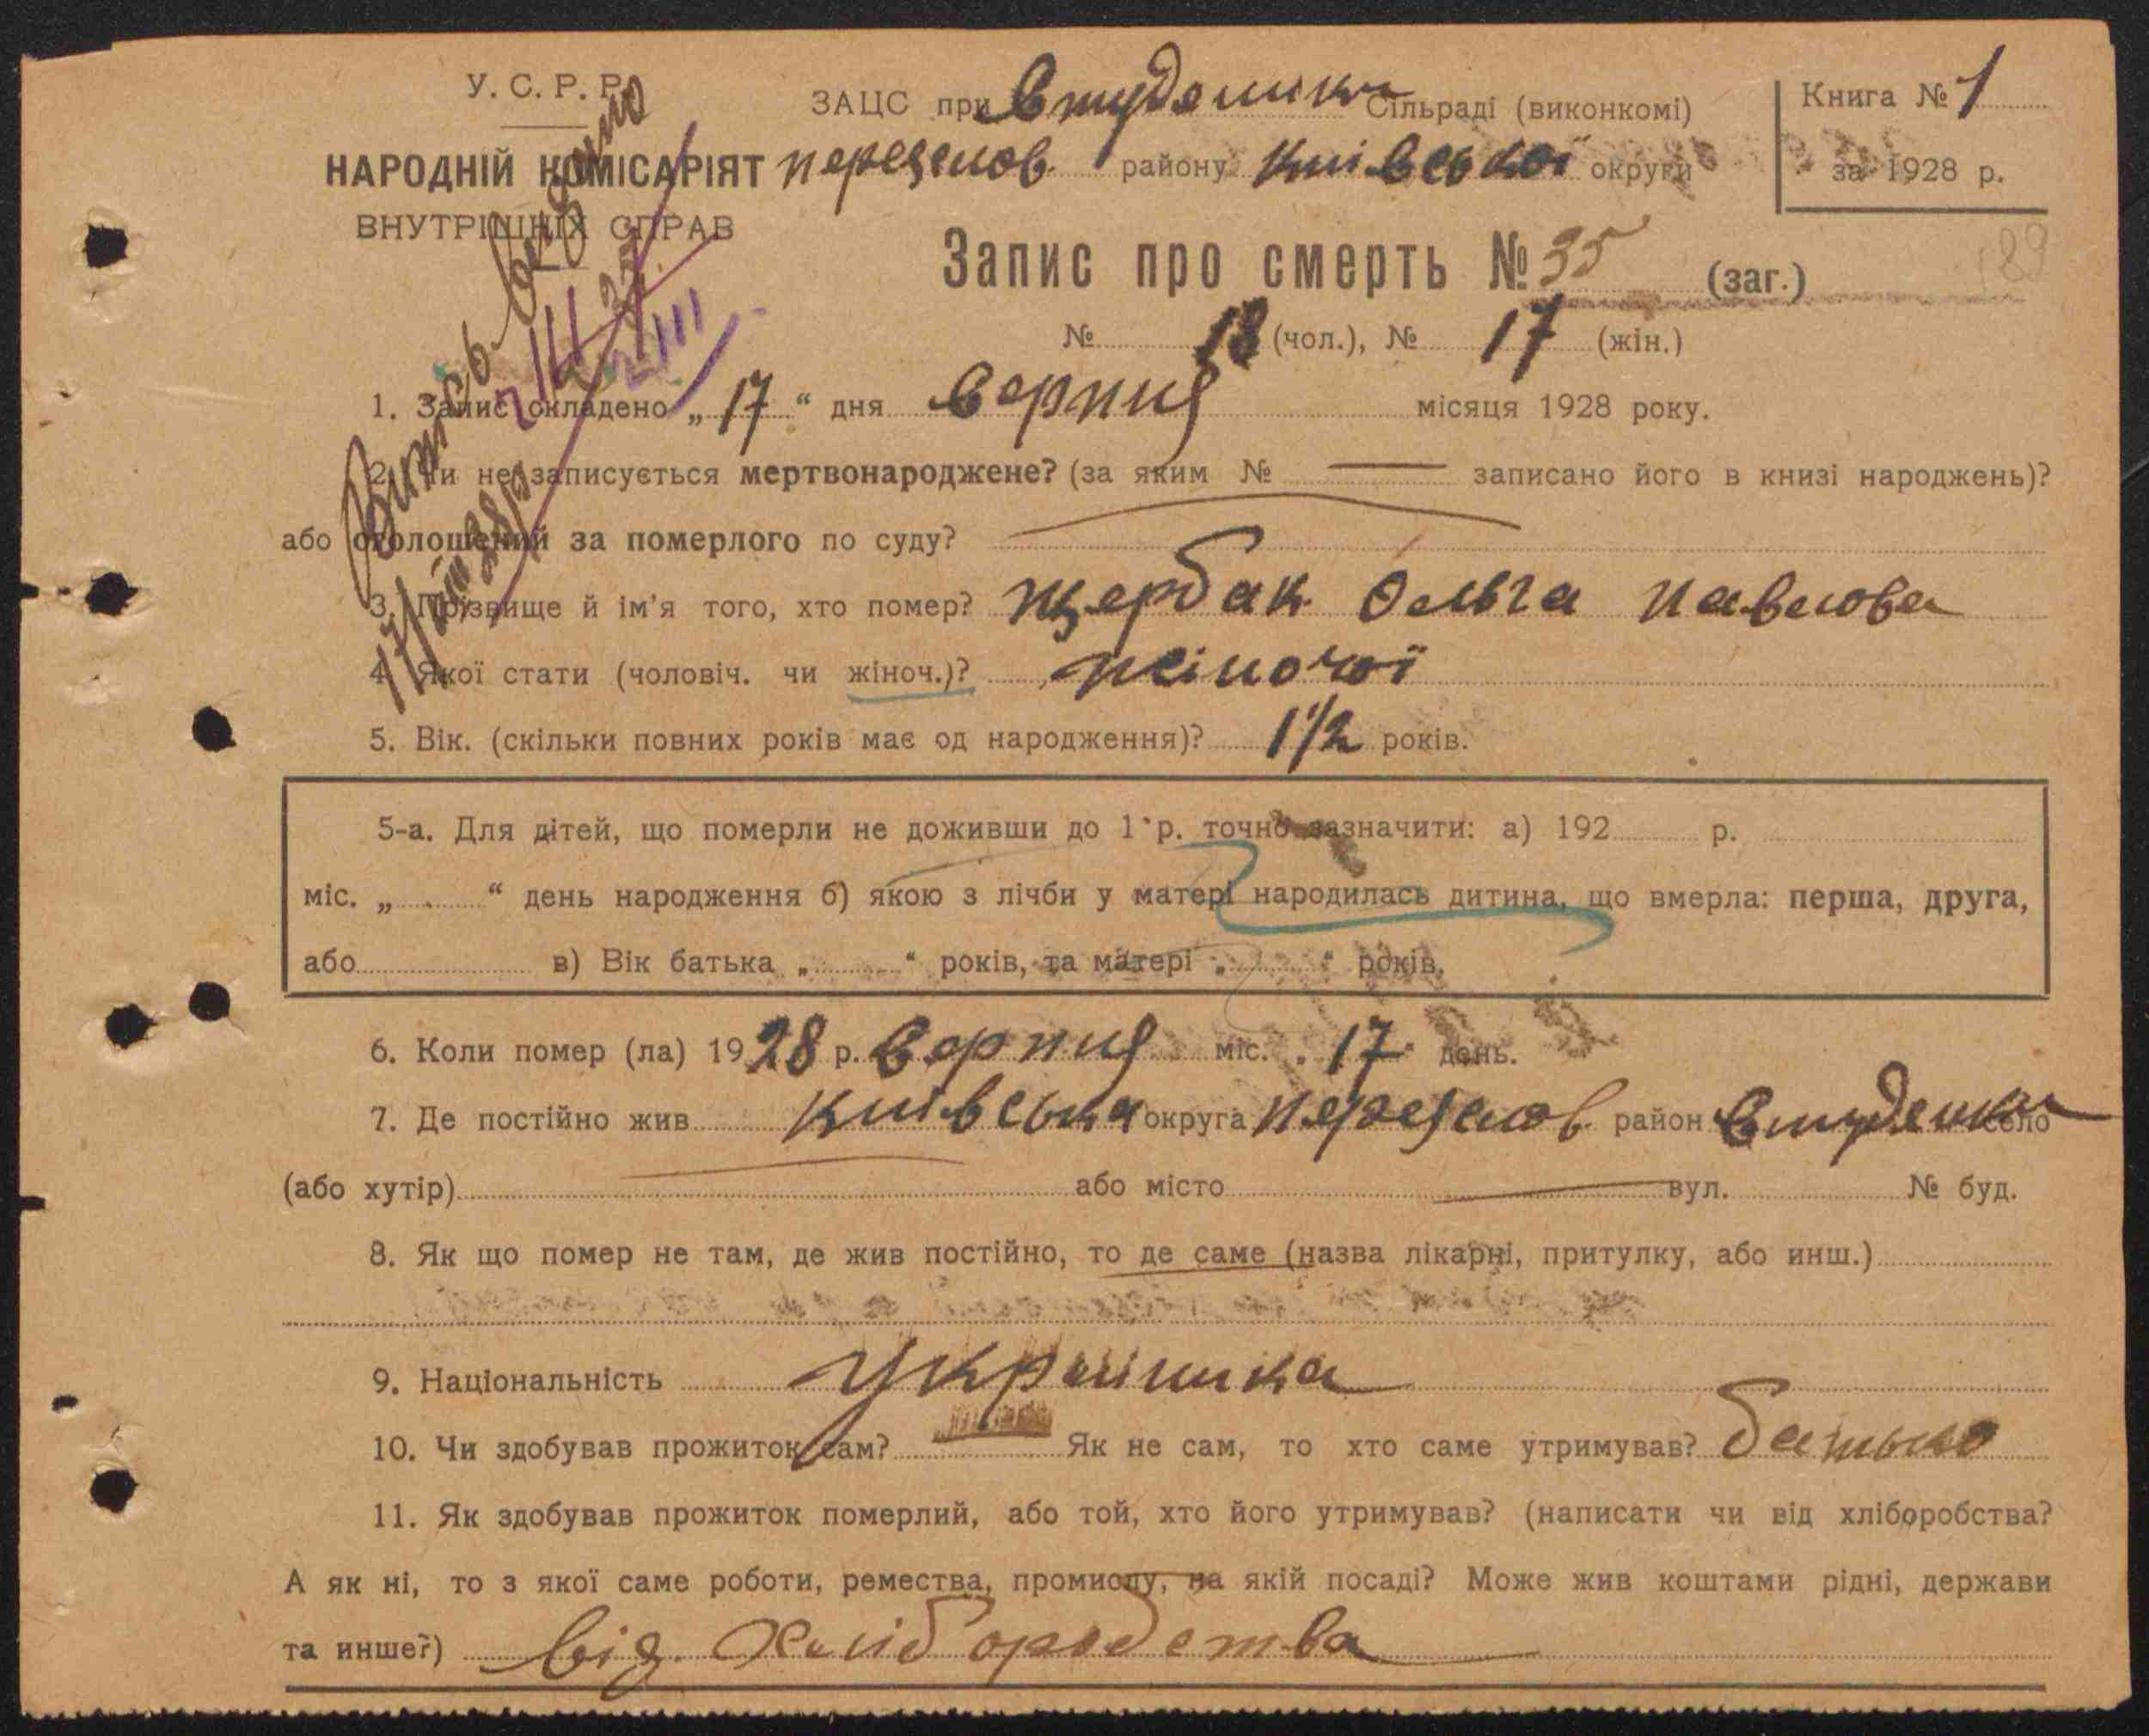 У. С. Р. Р.
НАРОДНІЙ КОМІСАРІЯТ
ВНУТРІШНІХ СПРАВ
ЗАЦС при Сільраді (виконкомі)
району Київської округи
Книга № 1
за 1928 р.
Запис про смерть № 35 (заг.)
№ 18 (чол.), № 17 (жін.)
1. Запис складено „ 17 “ дня серпня місяця 1928 року.
2. Чи не записується мертвонароджене? (за яким № — записано його в книзі народжень)?
або оголошений за померлого по суду?
3. Прізвище й ім'я того, хто помер? Щербак Ольга Павлова
4. Якої стати (чоловіч. чи жіноч.)? жіночої
5. Вік. (скільки повних років має од народження)? 1 1/2 років.
5-а. Для дітей, що померли не доживши до 1 р. точно зазначити: а) 192 р.
міс. „ “ день народження б) якою з лічби у матері народилась дитина, що вмерла: перша, друга,
або в) Вік батька „ “ років, та матері „ “ років.
6. Коли помер (ла) 1928 р. серпня міс. „ 17 “ день.
7. Де постійно жив Київська округа район село
(або хутір) або місто вул. № буд.
8. Як що помер не там, де жив постійно, то де саме (назва лікарні, притулку, або инш.)
9. Національність Українка
10. Чи здобував прожиток сам? Як не сам, то хто саме утримував? батько
11. Як здобував прожиток померлий, або той, хто його утримував? (написати чи від хліборобства?
А як ні, то з якої саме роботи, ремества, промислу, на якій посаді? Може жив коштами рідні, держави
та инше?) від хліборобства